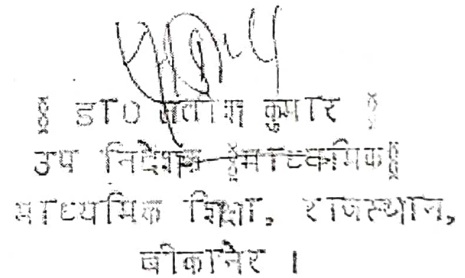 ॥ डा0 सतीश कुमार ॥
उप निदेशक ॥माध्यमिक॥
माध्यमिक शिक्षा, राजस्थान,
बीकानेर ।